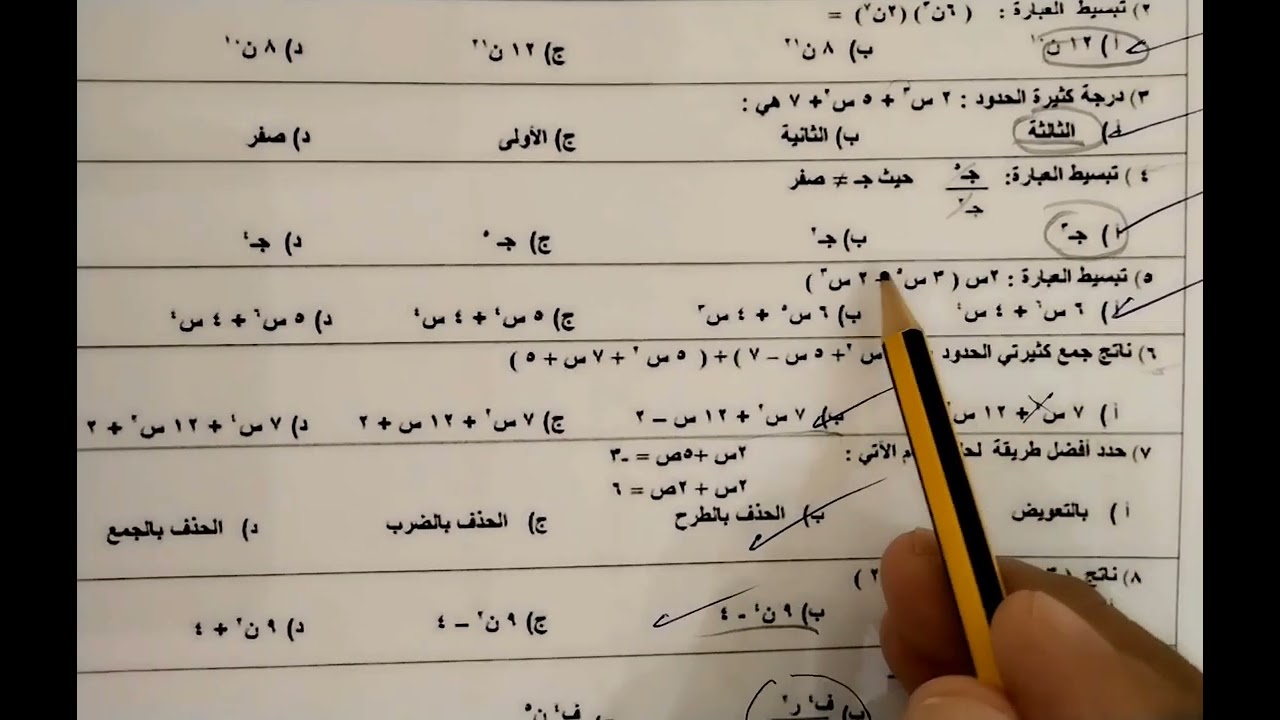 ٢) تبسيط العبارة : ( ٦ن٣) (٢ن٧) =
أ) ١٢ ن١٠ ب) ٨ ن٢١ ج) ١٢ ن٢١ د) ٨ ن١٠
٣) درجة كثيرة الحدود : ٢ س٣ + ٥ س٢ + ٧ هي :
أ) الثالثة ب) الثانية ج) الأولى د) صفر
٤ ) تبسيط العبارة: جـ٥ / جـ٢ حيث جـ ≠ صفر
أ ) جـ٣ ب) جـ٢ ج) جـ ٥ د) جـ٤
٥) تبسيط العبارة : ٢س ( ٣ س٥ ٢ س٣ )
أ) ٦ س٦ + ٤ س٤ ب) ٦ س٥ + ٤ س٣ ج) ٥ س٤ + ٤ س٤ د) ٥ س٦ + ٤ س٤
٦) ناتج جمع كثيرتي الحدود س٢ + ٥ س – ٧ ) + ( ٥ س ٢ + ٧ س + ٥ )
أ ) ٧ س + ١٢ س ب) ٧ س٢ + ١٢ س – ٢ ج) ٧ س٢ + ١٢ س + ٢ د) ٧ س٤ + ١٢ س٢ + ٢
٧) حدد أفضل طريقة الآتي : ٢س +٥ص = -٣
٢س + ٢ص = ٦
أ ) بالتعويض ب) الحذف بالطرح ج) الحذف بالضرب د) الحذف بالجمع
٨) ناتج ٢ )
ب) ٩ ن٤ - ٤ ج) ٩ ن٢ – ٤ د) ٩ ن٢ + ٤
ب) ف٤ ر٢ ف٤ ن٥